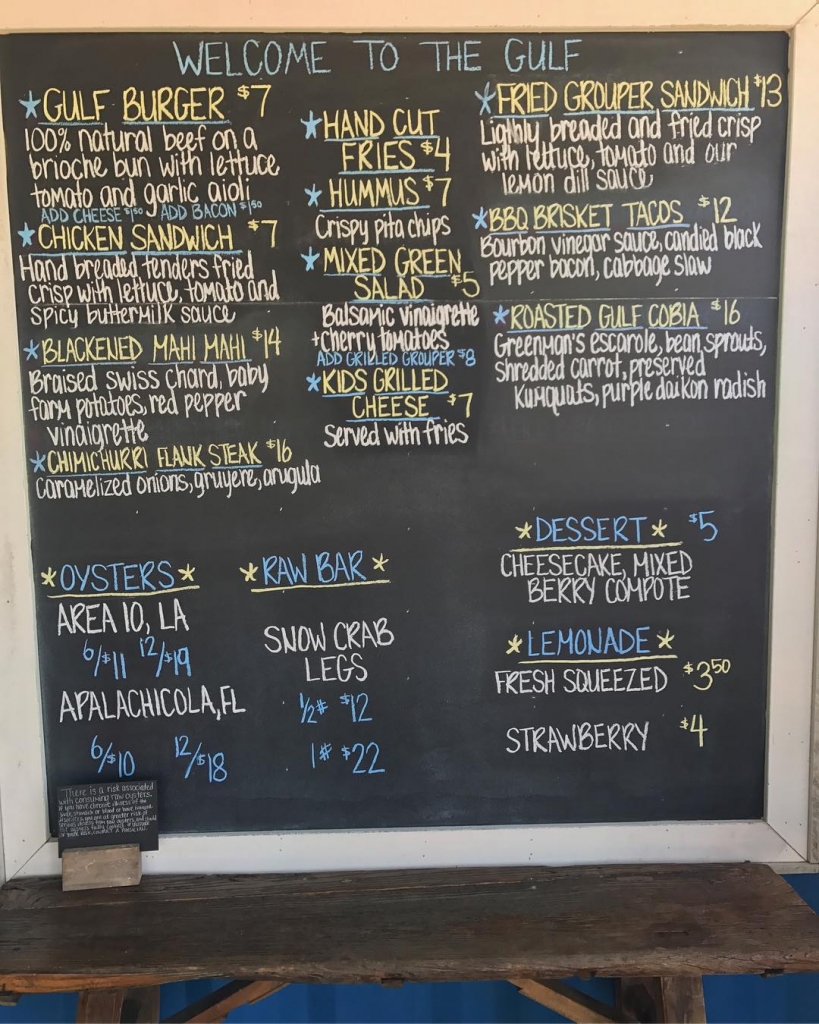 WELCOME TO THE GULF
*GULF BURGER $7
100% natural beef on a
brioche bun with lettuce
tomato and garlic aioli
ADD CHEESE $1.50 ADD BACON $1.50
*CHICKEN SANDWICH $7
Hand breaded tenders fried
crisp with lettuce, tomato and
spicy buttermilk sauce
*BLACKENED MAHI MAHI $14
Braised swiss chard, baby
farm potatoes, red pepper
vinaigrette
*CHIMICHURRI FLANK STEAK $16
caramelized onions, gruyere, arugula
*HAND CUT
FRIES $4
*HUMMUS $7
Crispy pita chips
*MIXED GREEN
SALAD $5
Balsamic vinaigrette
+cherry tomatoes
ADD GRILLED GROUPER $8
*KIDS GRILLED
CHEESE $7
Served with fries
*FRIED GROUPER SANDWICH $13
Ligthly breaded and fried crisp
with lettuce, tomato and our
lemon dill sauce
*BBQ BRISKET TACOS $12
Bourbon vinegar sauce, candied black
pepper bacon, cabbage slaw
*ROASTED GULF COBIA $16
Greenman's escarole, bean sprouts,
shredded carrot, preserved
kumquats, purple daikon radish
*OYSTERS*
AREA 10, LA
6/$11 12/$19
APALACHICOLA, FL
6/$10 12/$18
*RAW BAR*
SNOW CRAB
LEGS
1/2# $12
1# $22
*DESSERT* $5
CHEESECAKE, MIXED
BERRY COMPOTE
*LEMONADE*
FRESH SQUEEZED $3.50
STRAWBERRY $4
"There is a risk associated
with consuming raw oysters.